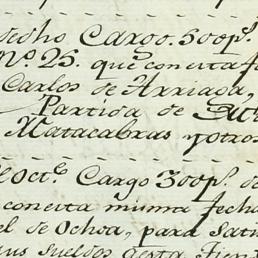 dicho Cargo. 500 p.s
N.o 25. que consta fo
Carlos de Arriaga,
Partida de
Matacabras y otros
Oct.e Cargo 300 p.s de
consta misma fecha
el de Ochoa, para sati
sus sueldos desta